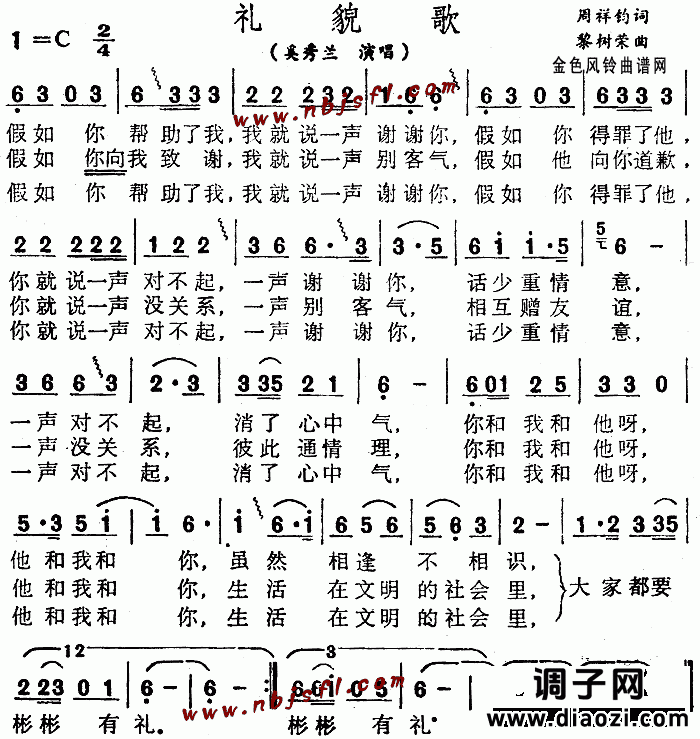 礼貌歌
周祥钧词
1=C 2/4
(奚秀兰 演唱)
黎树荣曲
金色风铃曲谱网
6 3 0 3 | 6 3 3 3 | 2 2 2 3 2 | 1 6 6 | 6 3 0 3 | 6 3 3 3 |
www.nbjsfl.com
假如 你 帮助了我,我就说一声 谢谢你, 假如 你 得罪了他,
假如 你向我致谢,我就说一声 别客气, 假如 他 向你道歉,
假如 你 帮助了我,我就说一声 谢谢你, 假如 你 得罪了他,
2 2 2 2 2 | 1 2 2 | 3 6 6·3 | 3·5 | 6 i i·5 | 6 - |
你就说一声 对不起, 一声谢谢你, 话少重情 意,
你就说一声 没关系, 一声别客气, 相互赠友 谊,
你就说一声 对不起, 一声谢谢你, 话少重情 意,
3 6 6 3 | 2·3 | 3 3 5 2 1 | 6 - | 6 0 1 2 5 | 3 3 0 |
一声对不起, 消了心中气, 你和我和他呀,
一声没关系, 彼此通情理, 你和我和他呀,
一声对不起, 消了心中气, 你和我和他呀,
5·3 5 i | i 6· | i· 6·i | 6 5 6 | 5 3 5 | 2 - | 1·2 3 3 5 |
他和我和 你,虽然 相逢 不 相识,
他和我和 你,生活 在文明的社会里, 大家都要
他和我和 你,生活 在文明的社会里,
12
3
2 2 3 0 1 | 6 - | 6 - :|| 6 0 i 0 5 | 6 - |
彬彬 有礼. 彬彬 有礼.
www.nbjsfl.com
调子网
www.diaozi.com